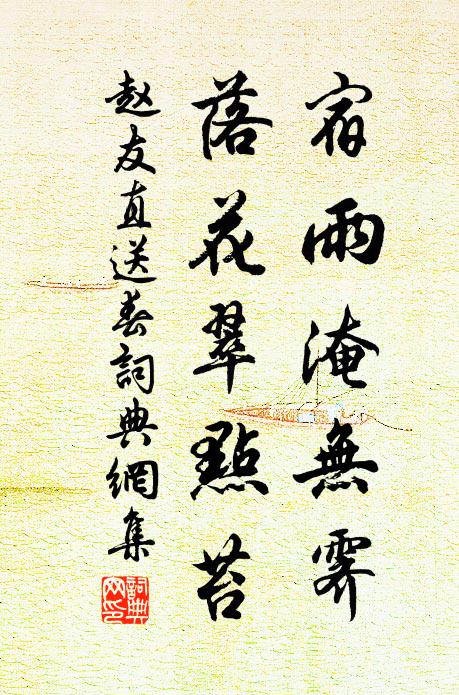 宿雨淹無霽
落花翠點苔
赵友直送春詞典網集
詞典
网印